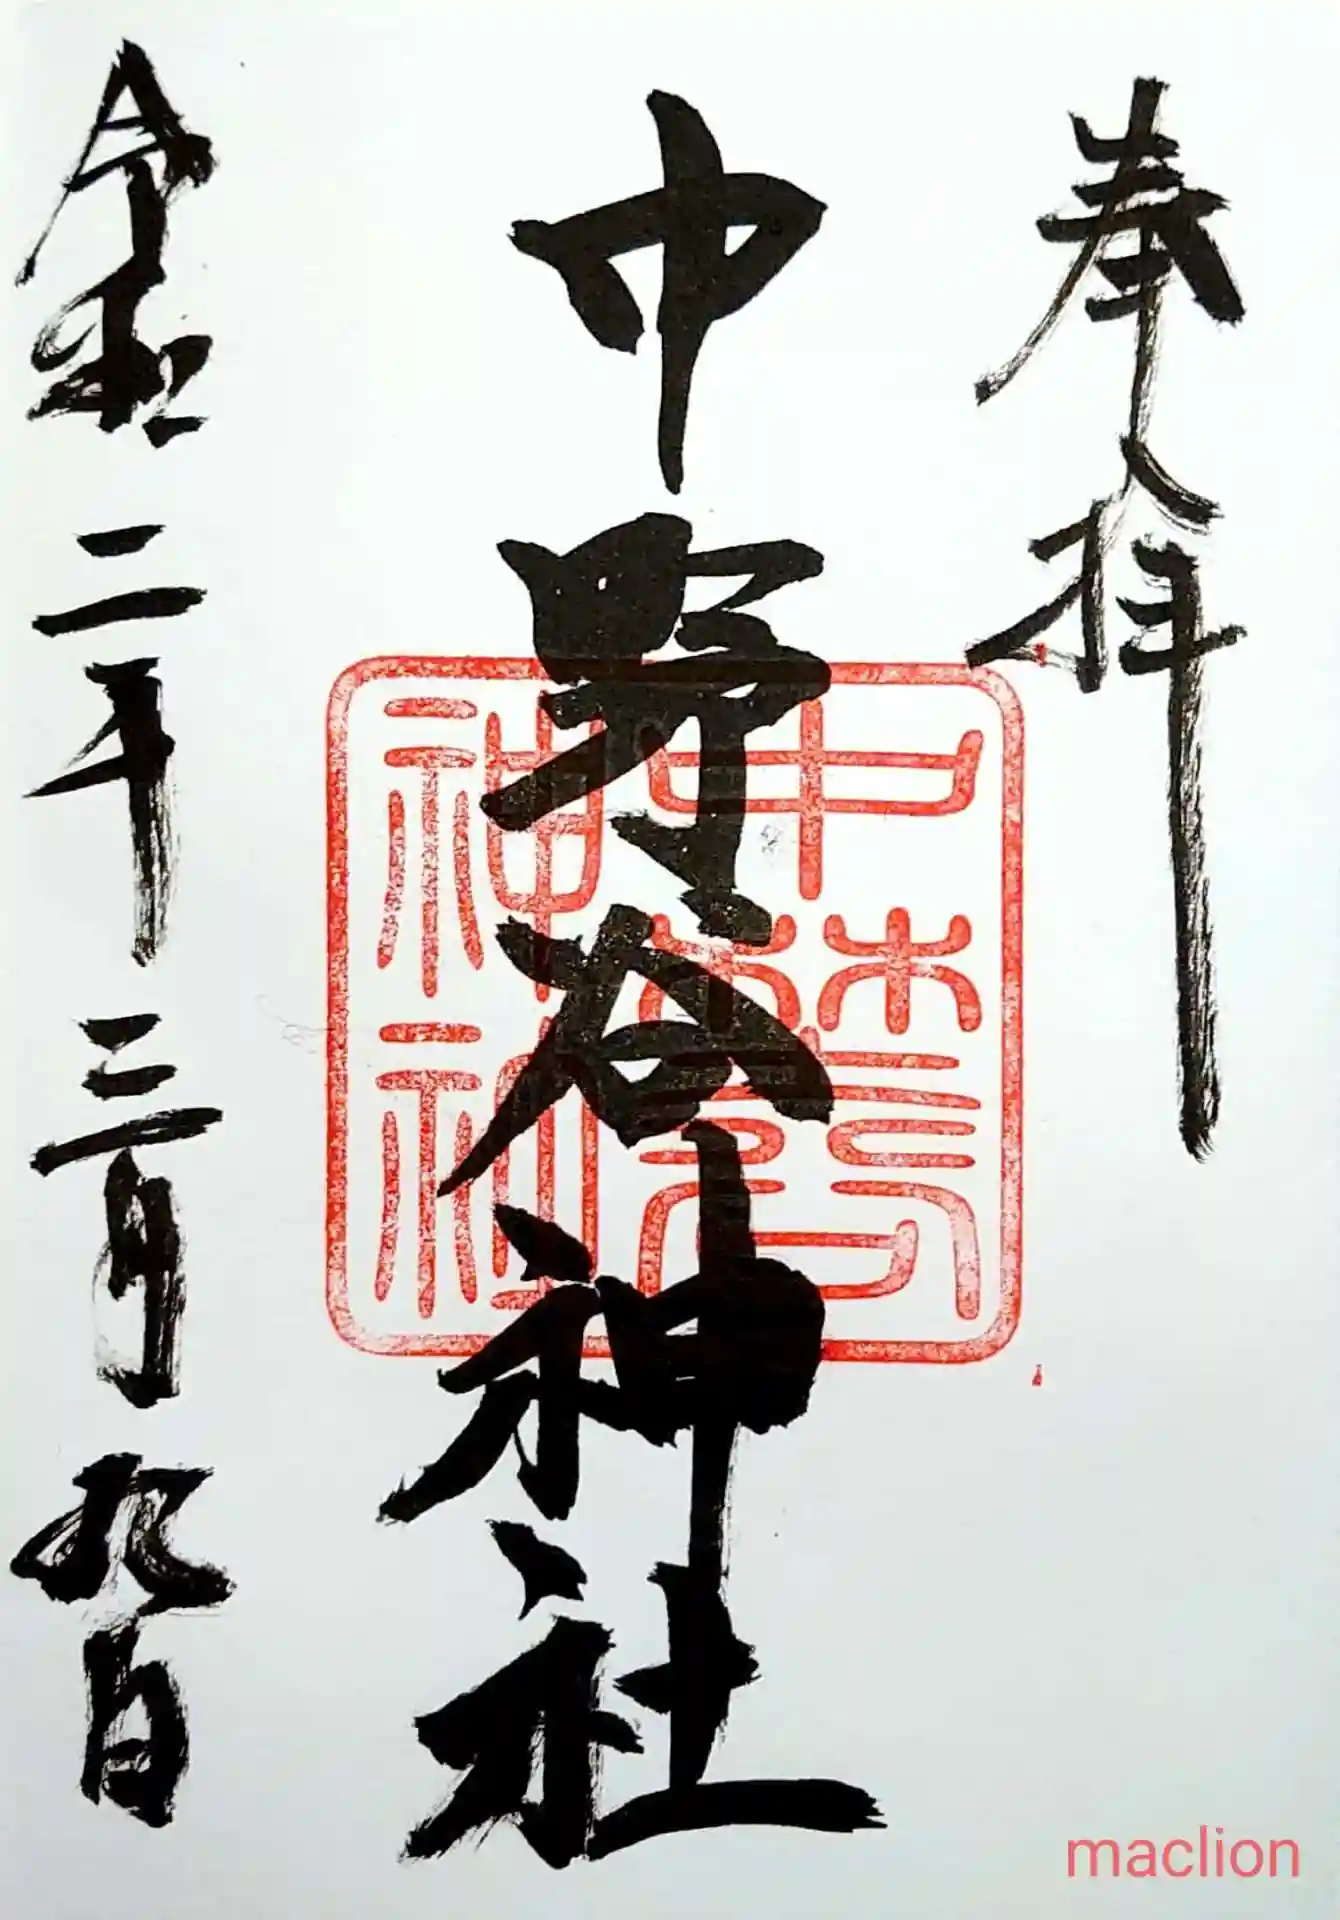 奉拝
中野谷神社
中野谷神社
令和二年三月九日
maclion